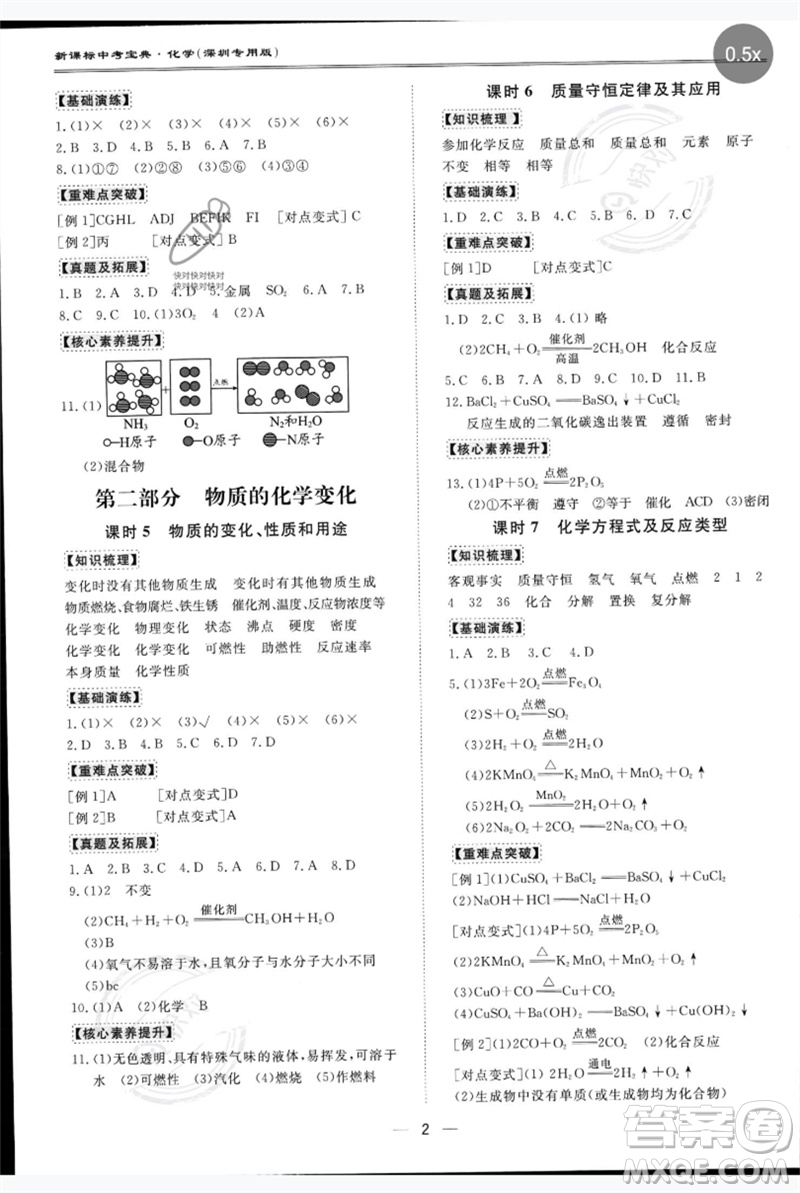 新课标中考宝典·化学(深圳专用版)
0.5x
【基础演练】
1.(1)× (2)× (3)× (4)× (5)× (6)×
2.B 3.D 4.B 5.A 6.D 7.B
8.(1)①⑦ (2)②⑧ (3)⑤⑥ (4)③④
【重难点突破】
[例1]CGHL ADJ BEFIK FI [对点变式]C
[例2]丙 [对点变式]B
【真题及拓展】
快对快对快对
快对快对快对
1.B 2.D 3.D 4.D 5.金属 SO₂ 6.D 7.D
8.C 9.C 10.(1)3O₂ 4 (2)A
【核心素养提升】
11.(1)
点燃
NH₃ O₂ N₂和H₂O
—H原子 —O原子 —N原子
(2)混合物
第二部分 物质的化学变化
课时5 物质的变化、性质和用途
【知识梳理】
变化时没有其他物质生成 变化时有其他物质生成
物质燃烧、食物腐烂、铁生锈 催化剂、温度、反应物浓度等
化学变化 物理变化 状态 沸点 硬度 密度
化学变化 化学变化 可燃性 助燃性 反应速率
本身质量 化学性质
【基础演练】
1.(1)× (2)× (3)√ (4)× (5)× (6)×
2.D 3.B 4.B 5.B 6.D 7.D
【重难点突破】
[例1]A [对点变式]D
[例2]B [对点变式]A
【真题及拓展】
1.A 2.D 3.B 4.C 5.D 6.B 7.A 8.D
9.(1)2 不变
(2)CH₄+H₂+O₂ 催化剂═ CH₃OH+H₂O
(3)B
(4)氧气不易溶于水,且氧分子与水分子大小不同
(5)bc
10.(1)A (2)化学 B
【核心素养提升】
11.(1)无色透明、具有特殊气味的液体,易挥发,可溶于
水 (2)可燃性 (3)汽化 (4)燃烧 (5)作燃料
课时6 质量守恒定律及其应用
【知识梳理】
参加化学反应 质量总和 质量总和 元素 原子
不变 相等 相等
【基础演练】
1.D 2.C 3.B 4.B 5.B 6.A 7.D
【重难点突破】
[例1]D [对点变式]C
【真题及拓展】
1.D 2.D 3.D 4.(1)略
(2)2CH₄+O₂ 催化剂═高温 2CH₃OH 化合反应
5.C 6.B 7.B 8.C 9.D 10.D 11.C
12.BaCl₂+CuSO₄═BaSO₄↓+CuCl₂
反应生成的二氧化碳逸出装置 遵守 密封
【核心素养提升】
13.(1)4P+5O₂ 点燃═ 2P₂O₅
(2)①不平衡 遵守 ②等于 催化 ACD (3)密闭
课时7 化学方程式及反应类型
【知识梳理】
客观事实 质量守恒 氢气 氧气 点燃 2 1 2
4 32 36 化合 分解 置换 复分解
【基础演练】
1.A 2.B 3.C 4.D
5.(1)3Fe+2O₂ 点燃═ Fe₃O₄
(2)S+O₂ 点燃═ SO₂
(3)2H₂+O₂ 点燃═ 2H₂O
(4)2KMnO₄ △═ K₂MnO₄+MnO₂+O₂↑
(5)2Na₂O₂+2CO₂═2Na₂CO₃+O₂
【重难点突破】
[例1](1)CuSO₄+BaCl₂═BaSO₄↓+CuCl₂
(2)NaOH+HCl═NaCl+H₂O
[对点变式](1)4P+5O₂ 点燃═ 2P₂O₅
(3)CuO+CO △═ Cu+CO₂
(4)CuSO₄+Ba(OH)₂═BaSO₄↓+Cu(OH)₂↓
[例2](1)2CO+O₂ 点燃═ 2CO₂ (2)化合反应
[对点变式](1)2H₂O 通电═ 2H₂↑+O₂↑
(2)生成物中没有单质(或生成物均为化合物等)
2
答案卷
MXQE.COM